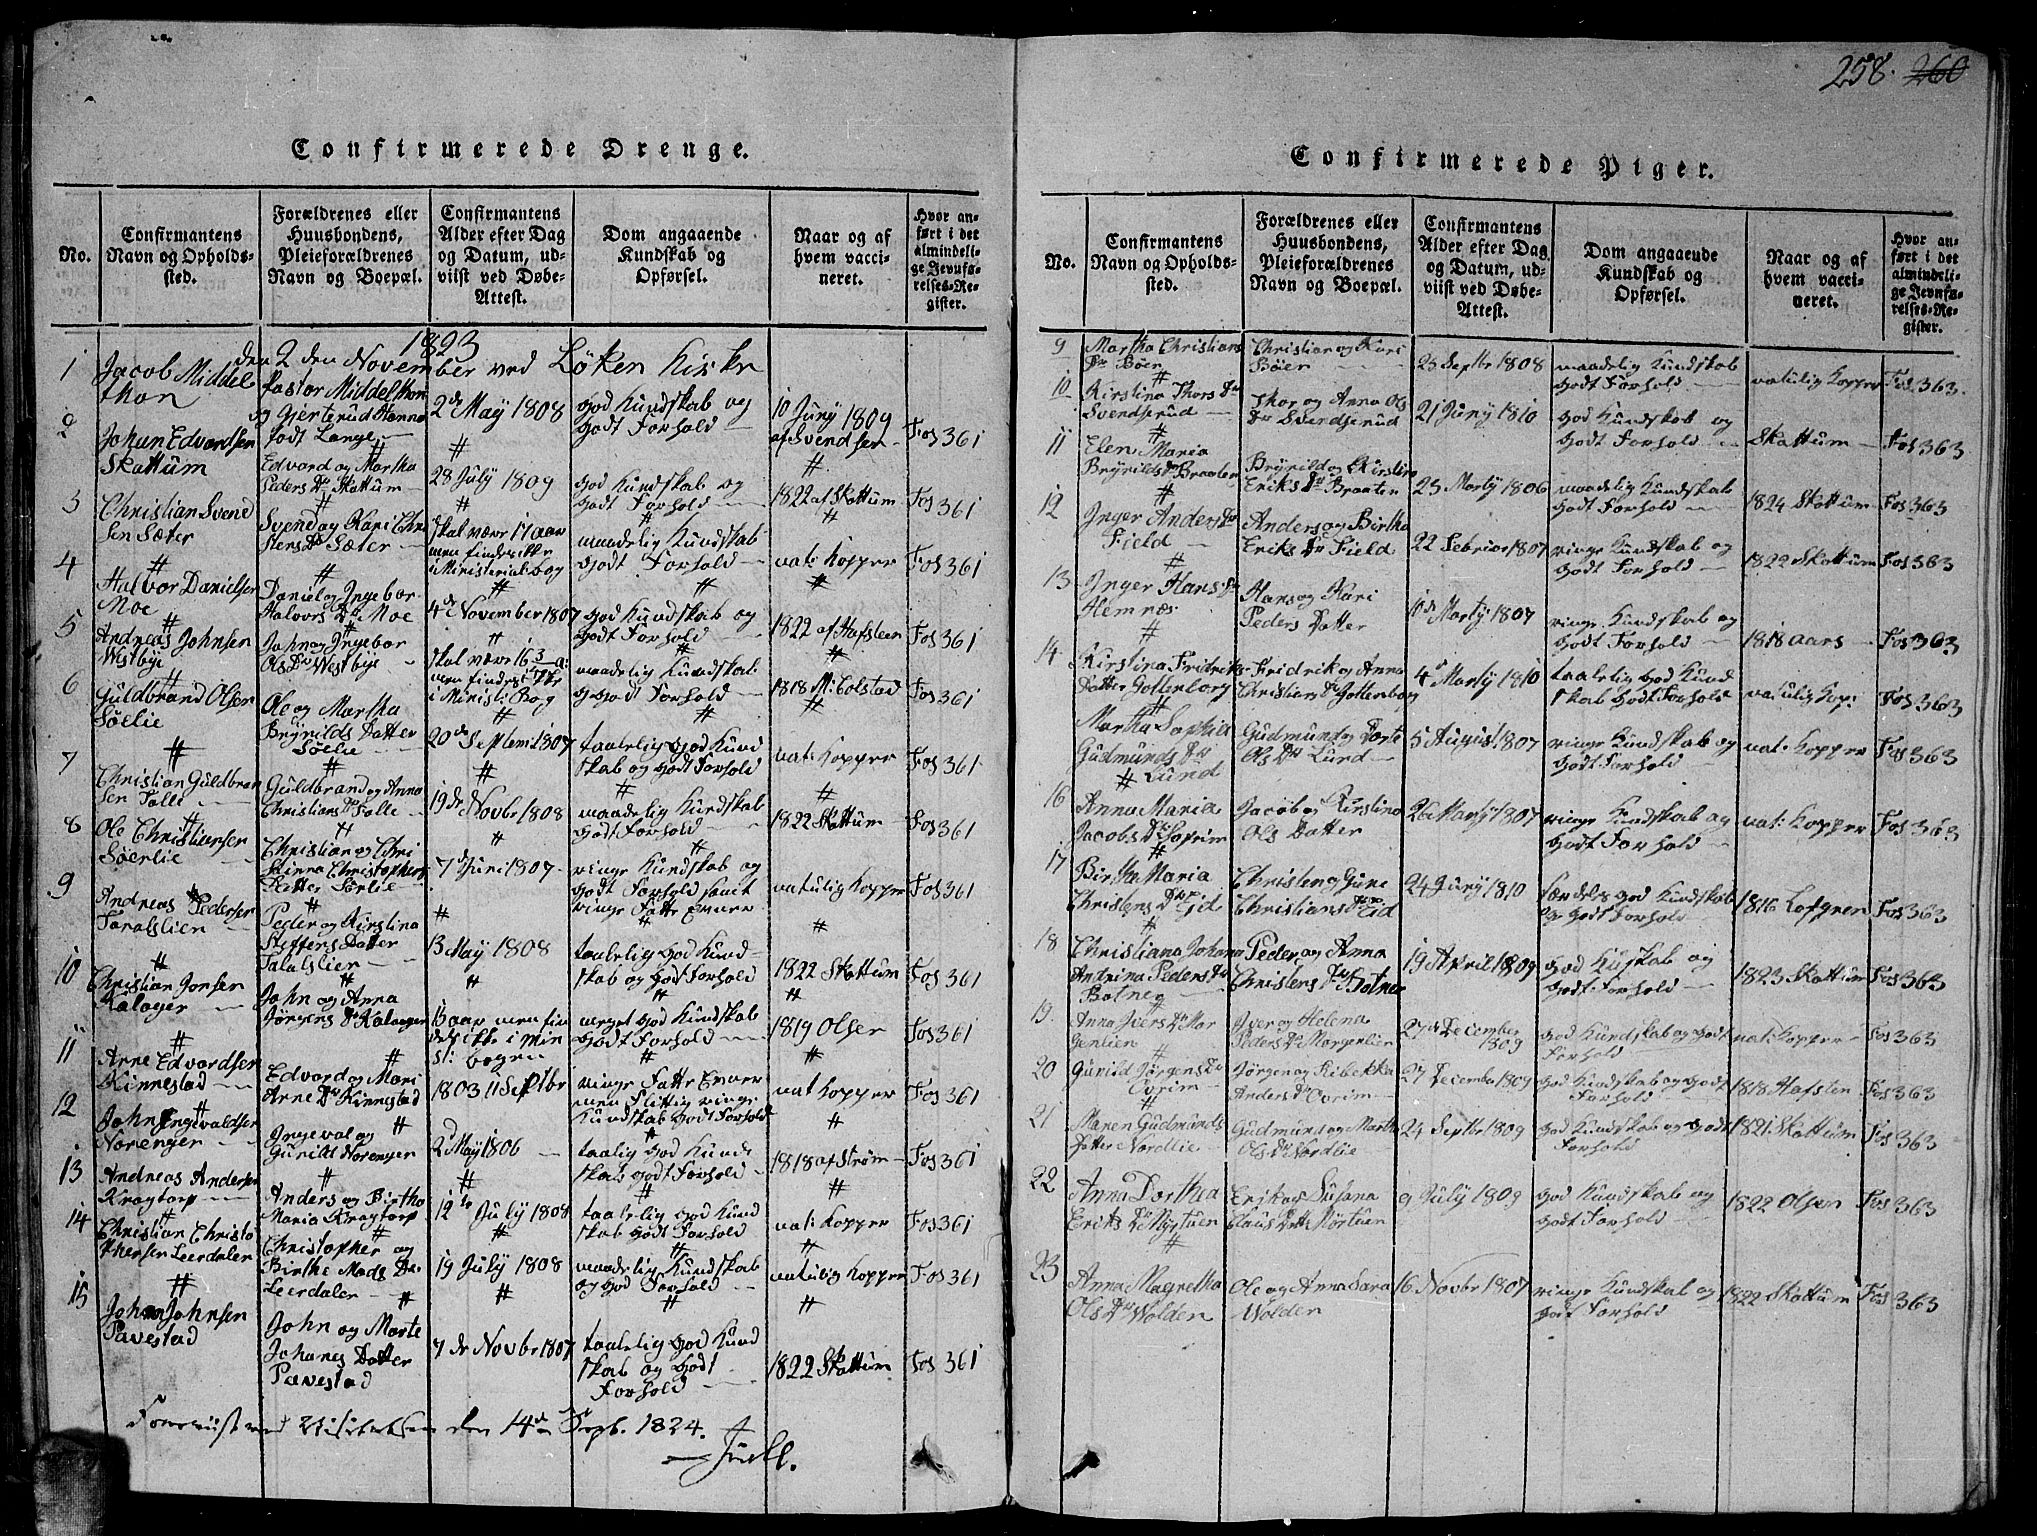 258. 260
Confirmerede Drenge.
No.
Confirmantens
Navn og Opholds-
sted.
Forældrenes eller
Huusbondens,
Pleieforældrenes
Navn og Boepæl.
Confirmantens
Alder efter Dag
og Datum, ud-
viist ved Døbe-
Attest.
Dom angaaende
Kundskab og
Opførsel.
Naar og af
hvem vacci-
neret.
Hvor an-
ført i det
almindeli-
ge Jevnfø-
relses-Re-
gister.
1823
den 2 den November ved Löken Kirke
1
Jacob Middel
thon
Pastor Middelthon
og Gjertrud Hanna
Lange
2 de May 1808
god Kundskab og
godt Forhold
10 Juny 1809
af Svendsen
Fos 361
2
Johan Edvardsen
Skattum
Edvard og Martha
Peders Dr Skattum
28 July 1809
god Kundskab og
godt Forhold
1822 af Skattum
Fos 361
3
Christian Svend
sen Sæter
Svend og Kari Chri
stens Dr Sæter
skal være 17 aar
men findes ikke
i Ministerialebog
maadelig Kundskab
godt Forhold
nat: Kopper
Fos 361
4
Halvor Danielsen
Moe
Daniel og Ingebor
Halvors Dr Moe
4 de November 1807
god Kundskab og
godt Forhold
1822 af Hafsteen
Fos 361
5
Andreas Johnsen
Westbye
John og Ingebor
Ols Dr Westbye
skal være 16 3/4 a:
men findes ikke
i Minist: Bog
maadelig Kundskab
og godt Forhold
1818 M: Colstad
Fos 361
6
Guldbrand Olsen
Söelie
Ole og Martha
Brÿnilds Datter
Söelie
20 de Septem: 1807
taalelig god Kund
skab og godt Forhold
nat: Kopper
Fos 361
7
Christian Guldbran
sen Tolle
Guldbrand og Anna
Christians Dr Tolle
19 de Novbr 1808
maadelig Kundskab
godt Forhold
1822 Skattum
Fos 361
8
Ole Christiensen
Söerlie
Christian og Chri
stinna Christophers
Datter Sörlie
7 d Juni 1807
ringe Kundskab og
godt Forhold samt
ringe Fatte Evner
natulig Kopper
Fos 361
9
Andreas Pedersen
Taralslien
Peder og Kirstina
Steffens Datter
Talalslier
13 May 1808
taalelig god Kund-
skab og godt Forhold
1822 Skattum
Fos 361
10
Christian Jonsen
Kalager
John og Anna
Jörgens Dr Kalager
15 aar men fin
des ikke i Min
st: bogen
meget god Kundskab
godt Forhold
1819 Olsen
Fos 361
11
Arne Edvardsen
Kinnestad
Edvard og Mari
Arne Dr Kinnestad
1803 11 Septbr
ringe Fatte Evner
men Flittig ringe
Kundskab godt Forhold
nat Kopper
Fos 361
12
John Engevaldsen
Norenger
Ingeval og
Gurild Norenger
2 d May 1806
taalig god Kund
skab godt Forhold
1818 af Ström
Fos 361
13
Andreas Andersen
Kragtorp
Anders og Birtho
Maria Kragtorp
12 te July 1808
taalelig god Kund
skab godt Forhold
nat: Kopper
Fos 361
14
Christian Christo
phersen Leerdalen
Christopher og
Birthe Mads Da.
Leerdaler
19 July 1808
maadelig Kundskab
og god Forhold
natulig Kopper
Fos 361
15
Johan Johnsen
Pavestad
John og Marte
Johanes Datter
Pavestad
7 de Novbr 1807
taalelig god Kund
skab og godt
Forhold
1822 Skattum
Fos 361
Foreviist ved Visitatsen den 14 de Sept. 1824.
Juell.
Confirmerede Piger.
No.
Confirmantens
Navn og Opholds-
sted.
Forældrenes eller
Huusbondens,
Pleieforældrenes
Navn og Boepæl.
Confirmantens
Alder efter Dag
og Datum, ud-
viist ved Døbe-
Attest.
Dom angaaende
Kundskab og
Opførsel.
Naar og af
hvem vacci-
neret.
Hvor an-
ført i det
almindeli-
ge Jevnfø-
relses-Re-
gister.
9
Martha Christians
Dr Böer
Christian og Kari
Böer
23 Septbr 1808
maadelig Kundskab
godt Forhold
natulig Kopper
Fos 363.
10
Kirstina Thors Dr
Svendserud
Thor og Anna Ols
Dr Svendserud
21 Juny 1810
god Kundskab og
godt Forhold
Skattum
Fos 363
11
Elen Maria
Brÿnilds Dr Braaten
Brÿnild og Kirstine
Eriks Dr Braaten
23 Marty 1806
maadelig Kundskab
godt Forhold
1824 Skattum
Fos 363
12
Inger Anders Dr
Field
Anders og Birtha
Eriks Dr Field
22 Februar 1807
ringe Kundskab og
godt Forhold
1822 Skattum
Fos 363
13
Inger Hans Dr
Hemnæs
Hans og Kari
Peders Datter
11 de Marty 1807
ringe Kundskab og
godt Forhold
1818 aars
Fos 363
14
Kirstina Fridriks
Datter Gottenborg
Fridrik og Anna
Christians Dr Gottenborg
4 de Marty 1810
taalelig god Kund
skab godt Forhold
natulig Kop:
Fos 363
Martha Sophia
Gudmunds Dr
Lund
Gudmund og Dorte
Ols Dr Lund
5 August 1807
ringe Kundskab og
godt Forhold
nat: Kopper
Fos 363
16
Anna Maria
Jacobs Dr
Jacob og Kirstina
Ols Datter
26 Marty 1807
ringe Kundskab og
godt Forhold
nat: Kopper
Fos 363
17
Birthe Maria
Christens Dtr Eid
Christen og Gure
Christians Dtr Eid
24 Juny 1810
særdeles god Kundskab
og godt Forhold
1816 Lofgren
Fos 363
18
Christiana Johana
Andrina Peders Dr
Botner
Peder og Anna
Christens Dr Botner
19 April 1809
god Kuskab og
godt Forhold
1823 Skattum
Fos 363
19.
Anna Ivers Dr Mor
genlien
Iver og Helena
Peders Dr Morgenlien
27 d December
1809
god Kundskab og godt
Forhold
nat: Kopper
Fos 363
20
Gunild Jörgens Dr
Jörgen og Ribekka
Anders Dr
27 Decembe 1809
god Kundskab og godt
Forhold
1818 Hafsten
Fos 363
21
Maren Gudmunds
Datter Nordlie
Gudmund og Martha
Ols Dr Nordlie
24 Septbr 1809
god Kundskab og godt
Forhold
1821 Skattum
Fos 363
22
Anna Dorthea
Eriks Dr
Erik og Susana
Claus Dtr
9 July 1809
god Kundskab og
godt Forhold
1822 Olsen
Fos 363
23
Anna Magretha
Ols Dr Wolden
Ole og Anna Sara
Wolden
16 Novbr 1807
ringe Kundskab og
godt Forhold
1822 Skattum
Fos 363